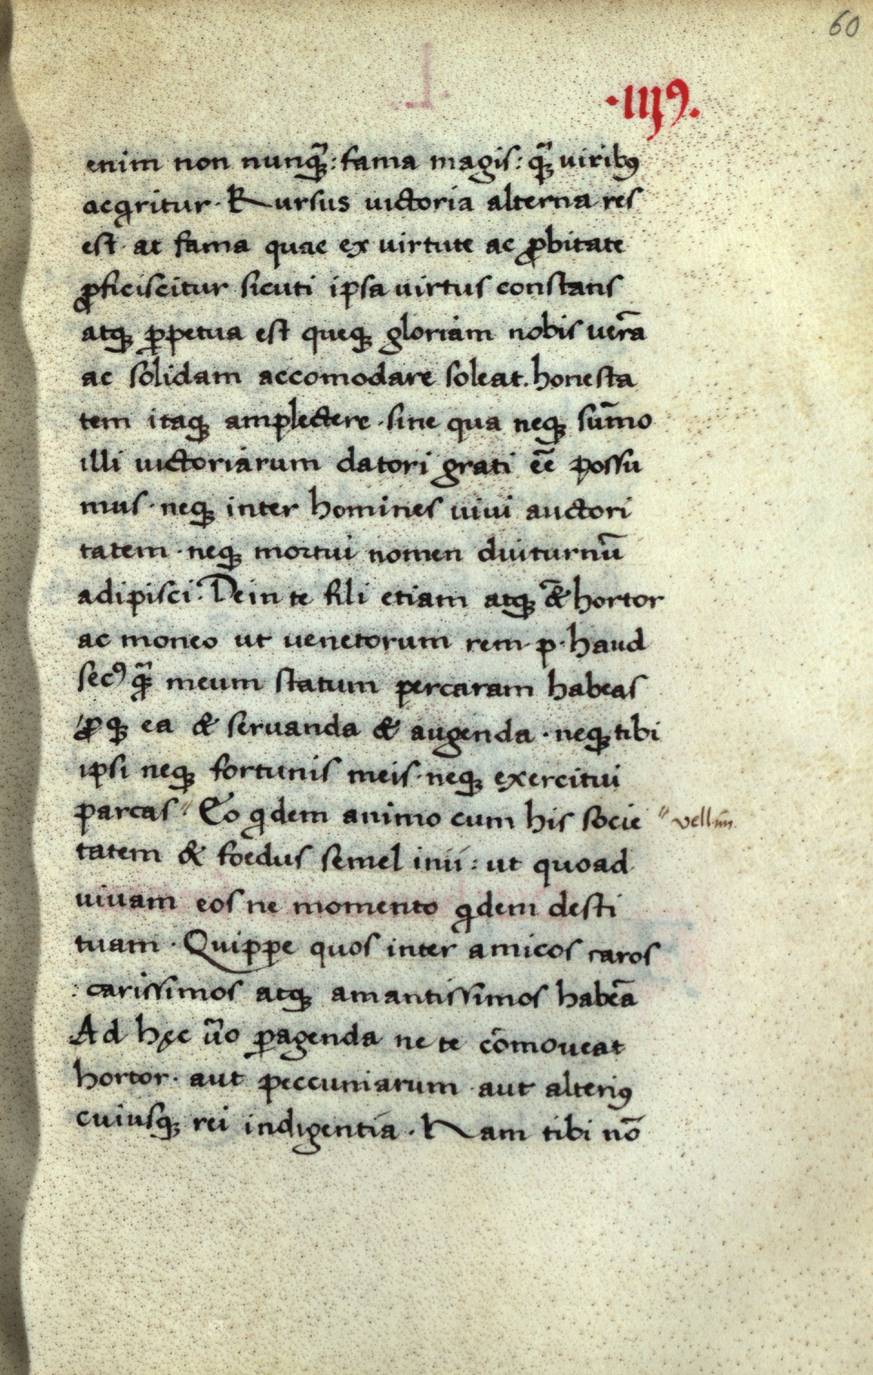 60
·IIIꝰ.
enim non nunqꝫ̃: fama magis: qꝫ̃ uiribꝰ
aeqritur· Rursus uictoria alterna res
est· at fama quae ex uirtute ac ꝓbitate
ꝓficiscitur sicuti ipsa uirtus constans
atqꝫ ꝑpetua est queqꝫ gloriam nobis uerā
ac solidam accomodare soleat. honesta
tem itaqꝫ amplectere· sine qua neqꝫ sūmo
illi uictoriarum datori grati eē possu
mus· neqꝫ inter homines uiui auctori
tatem· neqꝫ mortui nomen diuturnū
adipisci· Dein te fili etiam atqꝫ & hortor
ac moneo ut uenetorum rem· p· haud
secꝰ qꝫ̃ meum statum percaram habeas
ꝓqꝫ ea & seruanda & augenda· neqꝫ tibi
ipsi neqꝫ fortunis meis· neqꝫ exercitui
parcas〃 Eo qdem animo cum his socie 〃 vellim
tatem & foedus semel inii: ut quoad
uiuam eos ne momento qdem desti
tuam· Quippe quos inter amicos caros
: carissimos atqꝫ amantissimos habeā
Ad hęc ūo ꝑagenda ne te cōmoueat
hortor· aut peccuniarum aut alteriꝰ
cuiusqꝫ rei indigentia· Nam tibi nō